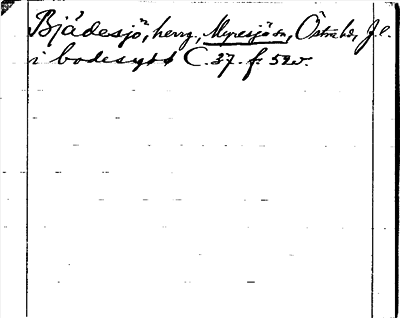 Bjädesjö, herrg, Myresjö sn, Östra hd, J.l.
i bodesytt C. 37. f: 52v.